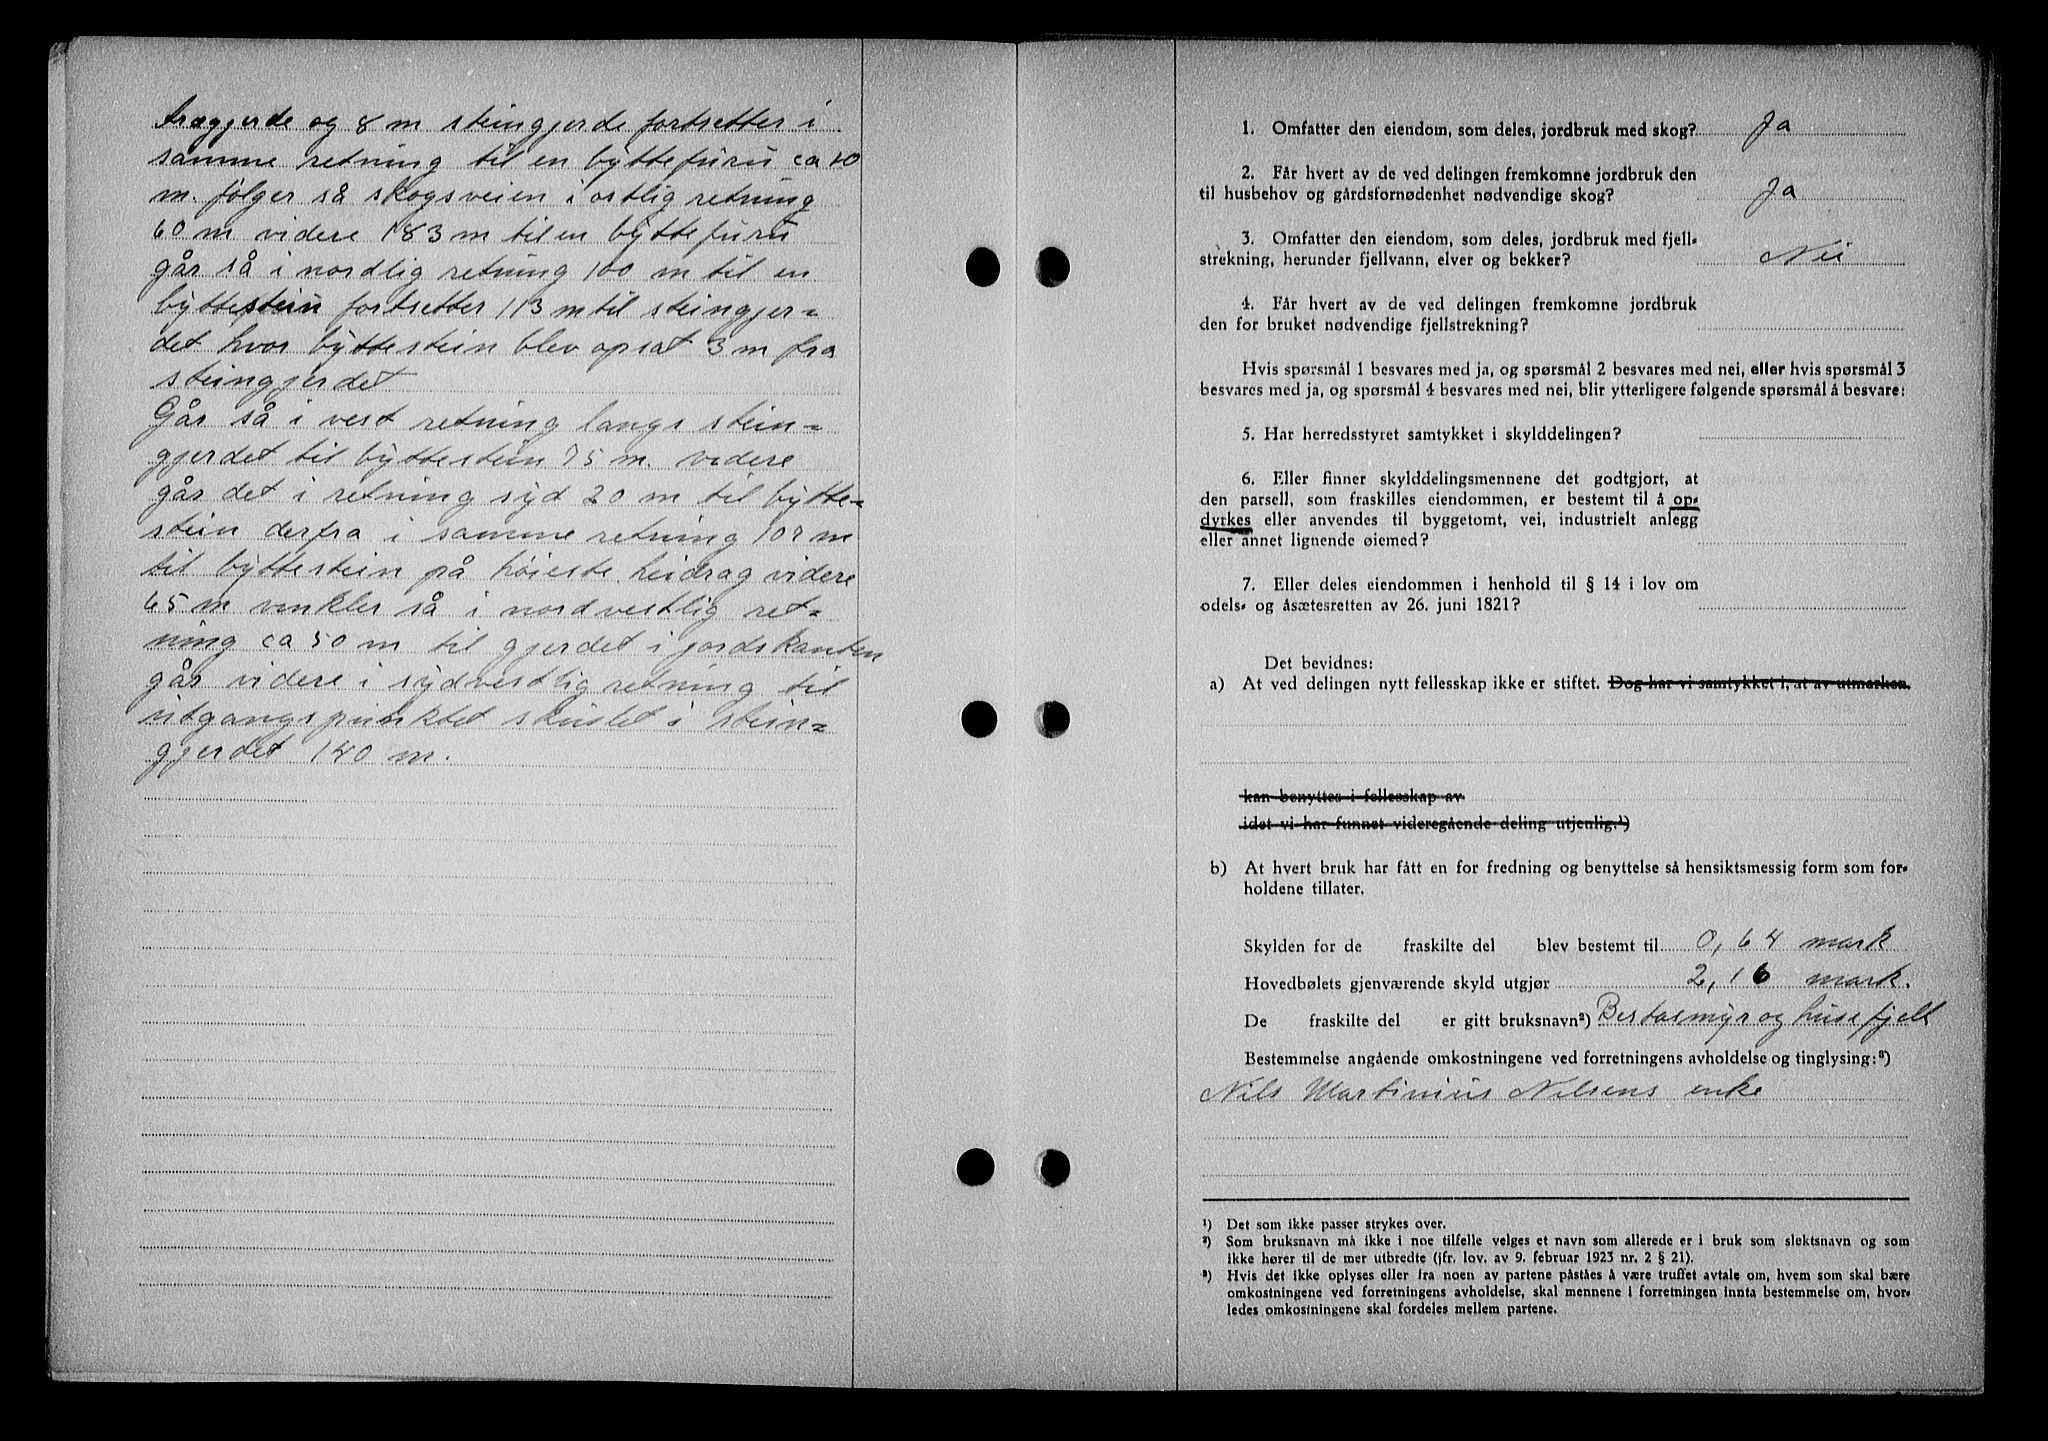 trægjerde og 8 m steingjerde fortsetter i
samme retning til en byttefuru ca 10
m. følger så skogsveien i østlig retning
60 m videre 183 m til en byttefuru
går så i nordlig retning 100 m til en
byttestein fortsetter 113 m til steingjer=
det hvor byttestein blev opsat 3 m fra
steingjerdet
Går så i vest retning langs stein=
gjerdet til byttestein 75 m. videre
går det i retning syd 20 m til bytte=
stein derfra i samme retning 107 m
til byttestein på høieste heidrag videre
65 m vinkler så i nordvestlig ret=
ning ca 50 m til gjerdet i jordskanten
går videre i sydvestlig retning til
utgangspunktet i stein=
gjerdet 140 m.
1. Omfatter den eiendom, som deles, jordbruk med skog? Ja
2. Får hvert av de ved delingen fremkomne jordbruk den
til husbehov og gårdsfornødenhet nødvendige skog? Ja
3. Omfatter den eiendom, som deles, jordbruk med fjell-
strekning, herunder fjellvann, elver og bekker? Nei
4. Får hvert av de ved delingen fremkomne jordbruk
den for bruket nødvendige fjellstrekning?
Hvis spørsmål 1 besvares med ja, og spørsmål 2 besvares med nei, eller hvis spørsmål 3
besvares med ja, og spørsmål 4 besvares med nei, blir ytterligere følgende spørsmål å besvare:
5. Har herredsstyret samtykket i skylddelingen?
6. Eller finner skylddelingsmennene det godtgjort, at
den parsell, som fraskilles eiendommen, er bestemt til å op-
dyrkes eller anvendes til byggetomt, vei, industrielt anlegg
eller annet lignende øiemed?
7. Eller deles eiendommen i henhold til § 14 i lov om
odels- og åsætesretten av 26. juni 1821?
Det bevidnes:
a) At ved delingen nytt fellesskap ikke er stiftet. Dog har vi samtykket i, at av utmarken,
kan benyttes i fellesskap av
idet vi har funnet videregående deling utjenlig.¹)
b) At hvert bruk har fått en for fredning og benyttelse så hensiktsmessig form som for-
holdene tillater.
Skylden for de fraskilte del blev bestemt til 0,64 mark
Hovedbølets gjenværende skyld utgjør 2,16 mark.
De fraskilte del er gitt bruksnavn²) og husefjell
Bestemmelse angående omkostningene ved forretningens avholdelse og tinglysing:³)
Nils Martinius Nilsens enke
¹) Det som ikke passer strykes over.
²) Som bruksnavn må ikke i noe tilfelle velges et navn som allerede er i bruk som slektsnavn og som
ikke hører til de mer utbredte (jfr. lov. av 9. februar 1923 nr. 2 § 21).
³) Hvis det ikke oplyses eller fra noen av partene påståes å være truffet avtale om, hvem som skal bære
omkostningene ved forretningens avholdelse, skal mennene i forretningen innta bestemmelse om, hvor-
ledes omkostningene skal fordeles mellem partene.